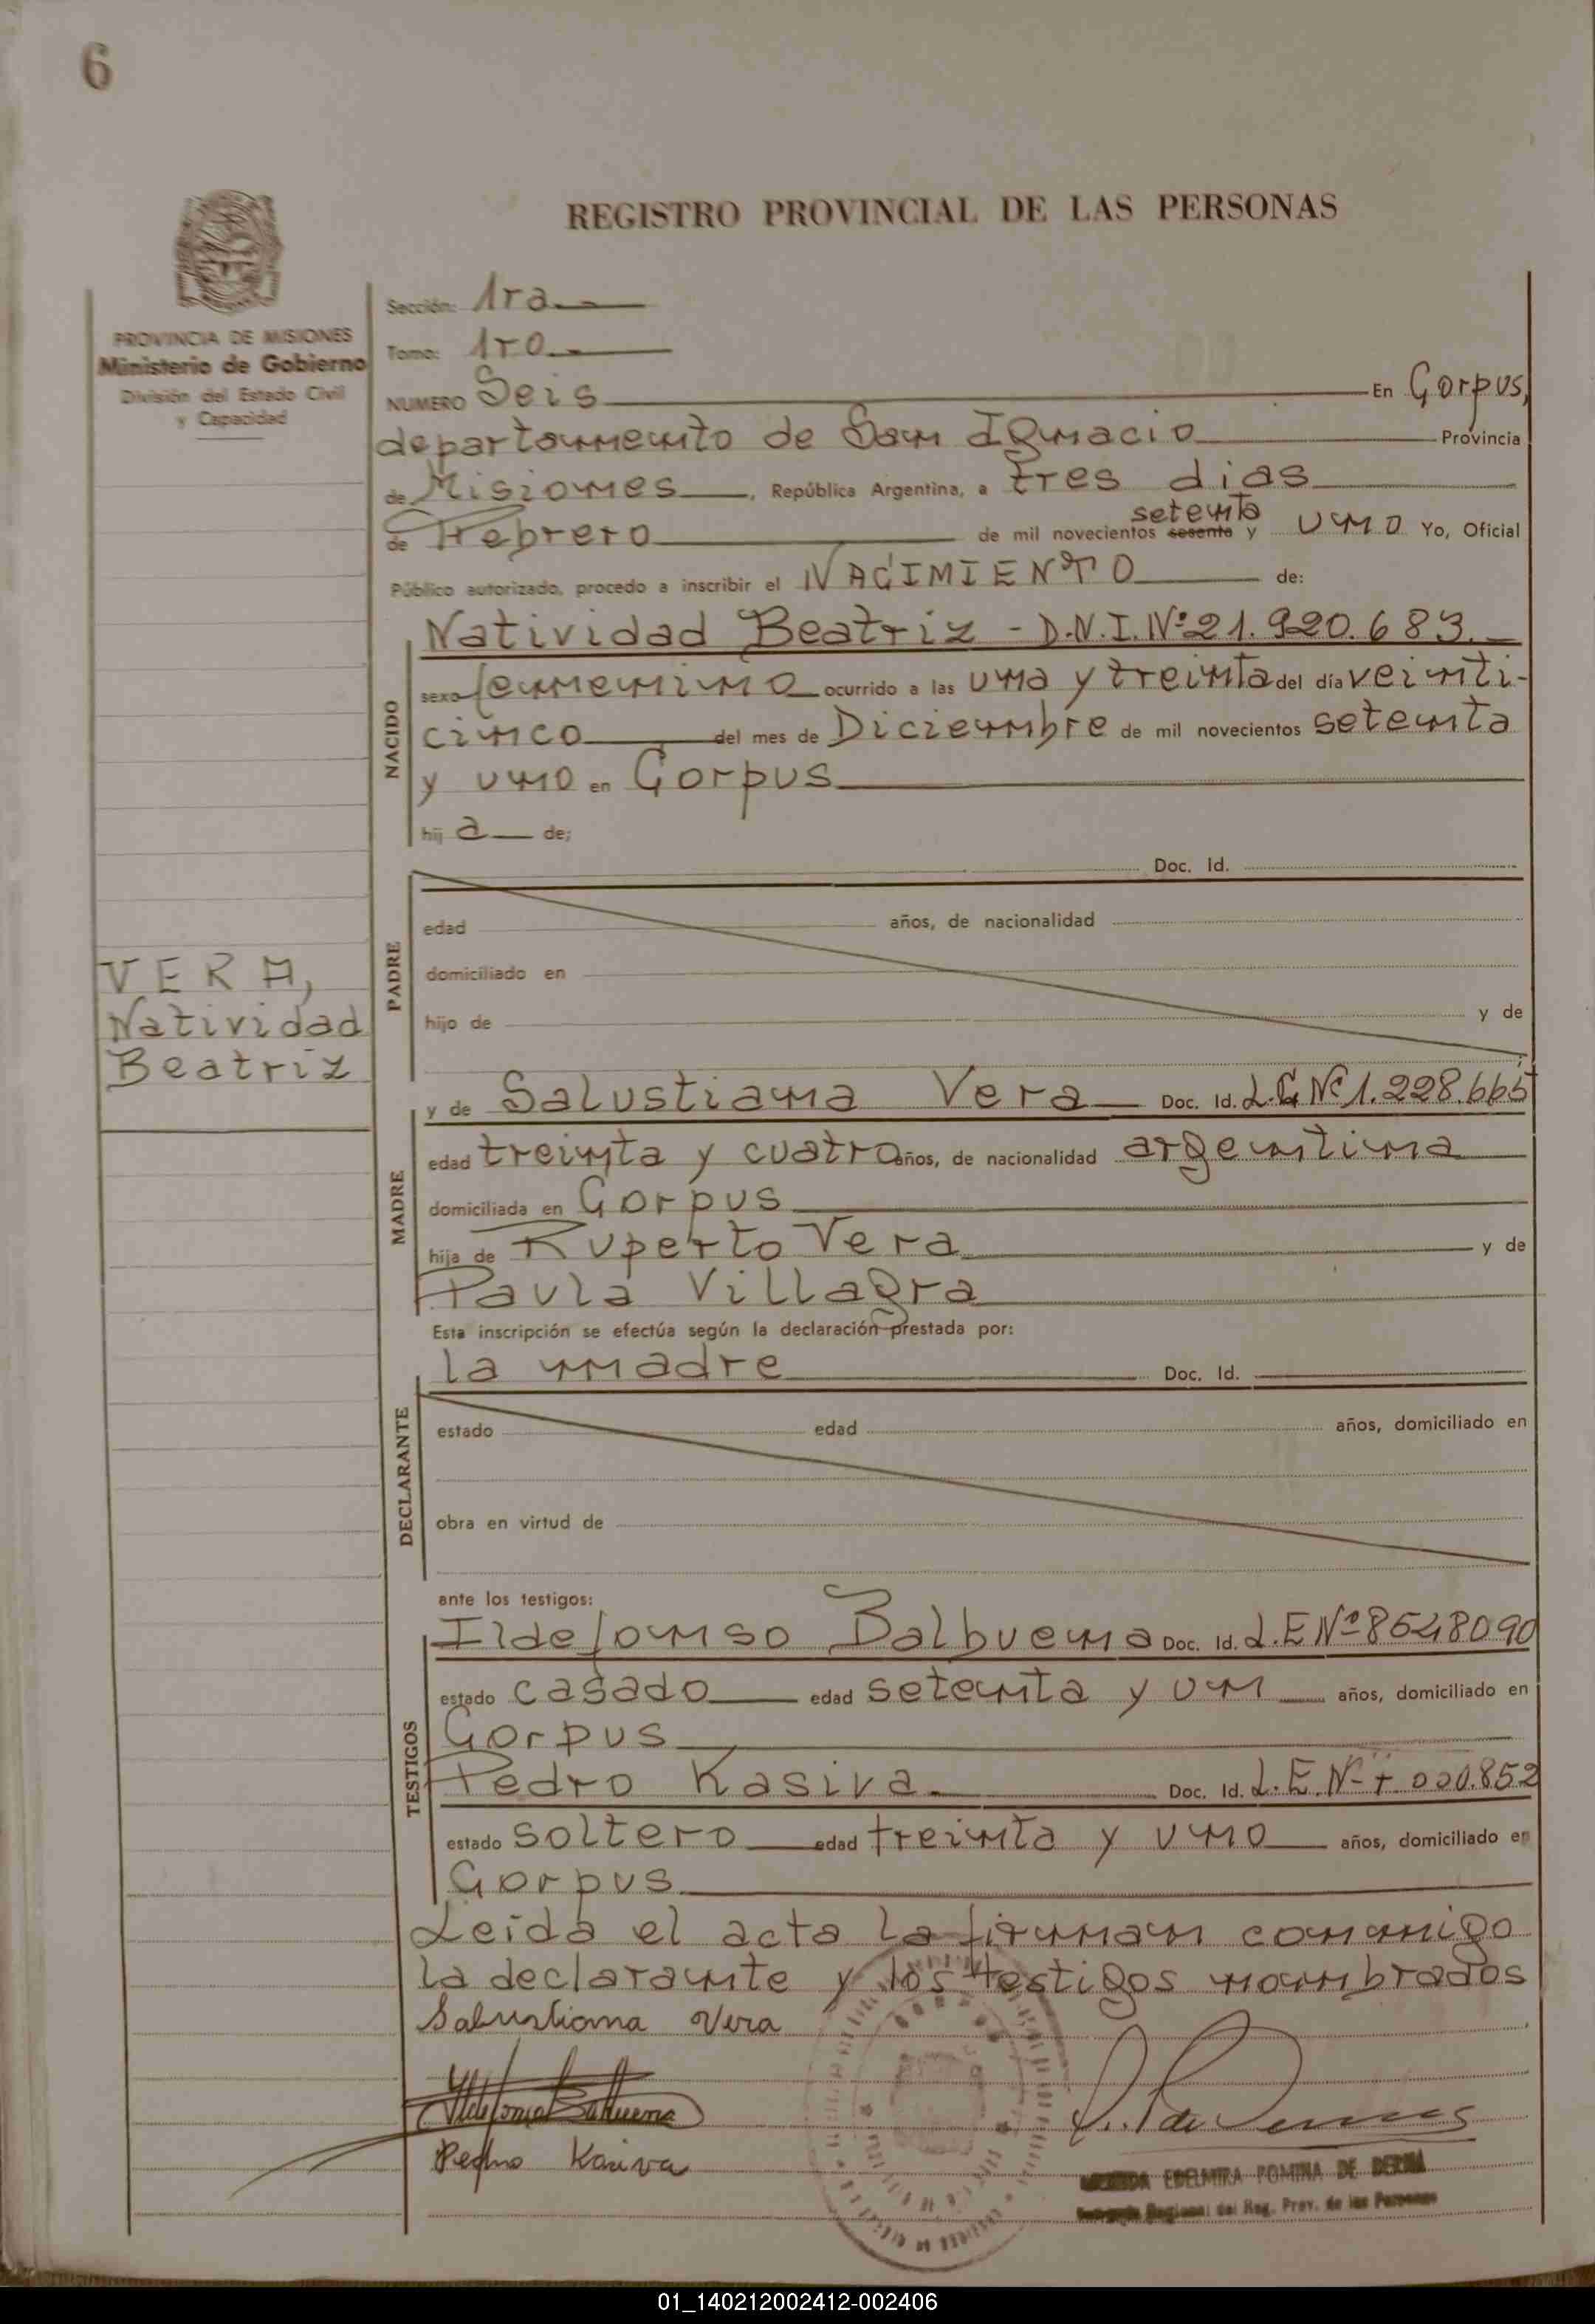 6
REGISTRO PROVINCIAL DE LAS PERSONAS
PROVINCIA DE MISIONES
Ministerio de Gobierno
División del Estado Civil
y Capacidad
Sección: 1ra
Tomo: 1ro
NUMERO Seis En Corpus,
departamento de San Ignacio Provincia
de Misiones, República Argentina, a tres dias
setenta
de Febrero de mil novecientos sesenta y uno Yo, Oficial
Público autorizado, procedo a inscribir el NACIMIENTO de:
NACIDO
Natividad Beatriz - D.N.I. Nº 21.920.683.
sexo femenino ocurrido a las una y treinta del día veinti-
cinco del mes de Diciembre de mil novecientos setenta
y uno en Corpus
hij a de;
PADRE
Doc. Id.
edad años, de nacionalidad
domiciliado en
hijo de y de
VERA,
Natividad
Beatriz
MADRE
y de Salustiana Vera Doc. Id. L.C Nº 1.228.665
edad treinta y cuatro años, de nacionalidad argentina
domiciliada en Corpus
hija de Ruperto Vera y de
Paula Villagra
Esta inscripción se efectúa según la declaración prestada por:
DECLARANTE
la madre Doc. Id.
estado edad años, domiciliado en
obra en virtud de
ante los testigos:
TESTIGOS
Ildefonso Balbuena Doc. Id. L.E Nº 8548090
estado casado edad setenta y un años, domiciliado en
Corpus
Pedro Kasiva Doc. Id. L.E.
estado soltero edad treinta y uno años, domiciliado en
Corpus
Leida el acta la firman conmigo
la declarante y los testigos nombrados
Salustiana Vera
Ildefonso Balbuena
Pedro Kasiva
EDELMIRA POMINA DE
del Reg. Prov. de las Personas
01_140212002412-002406